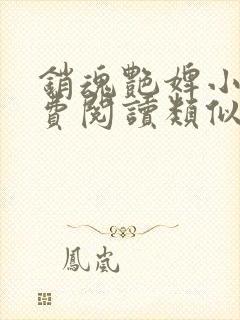 銷魂艷婢小
費閱讀類似
鳳嵐